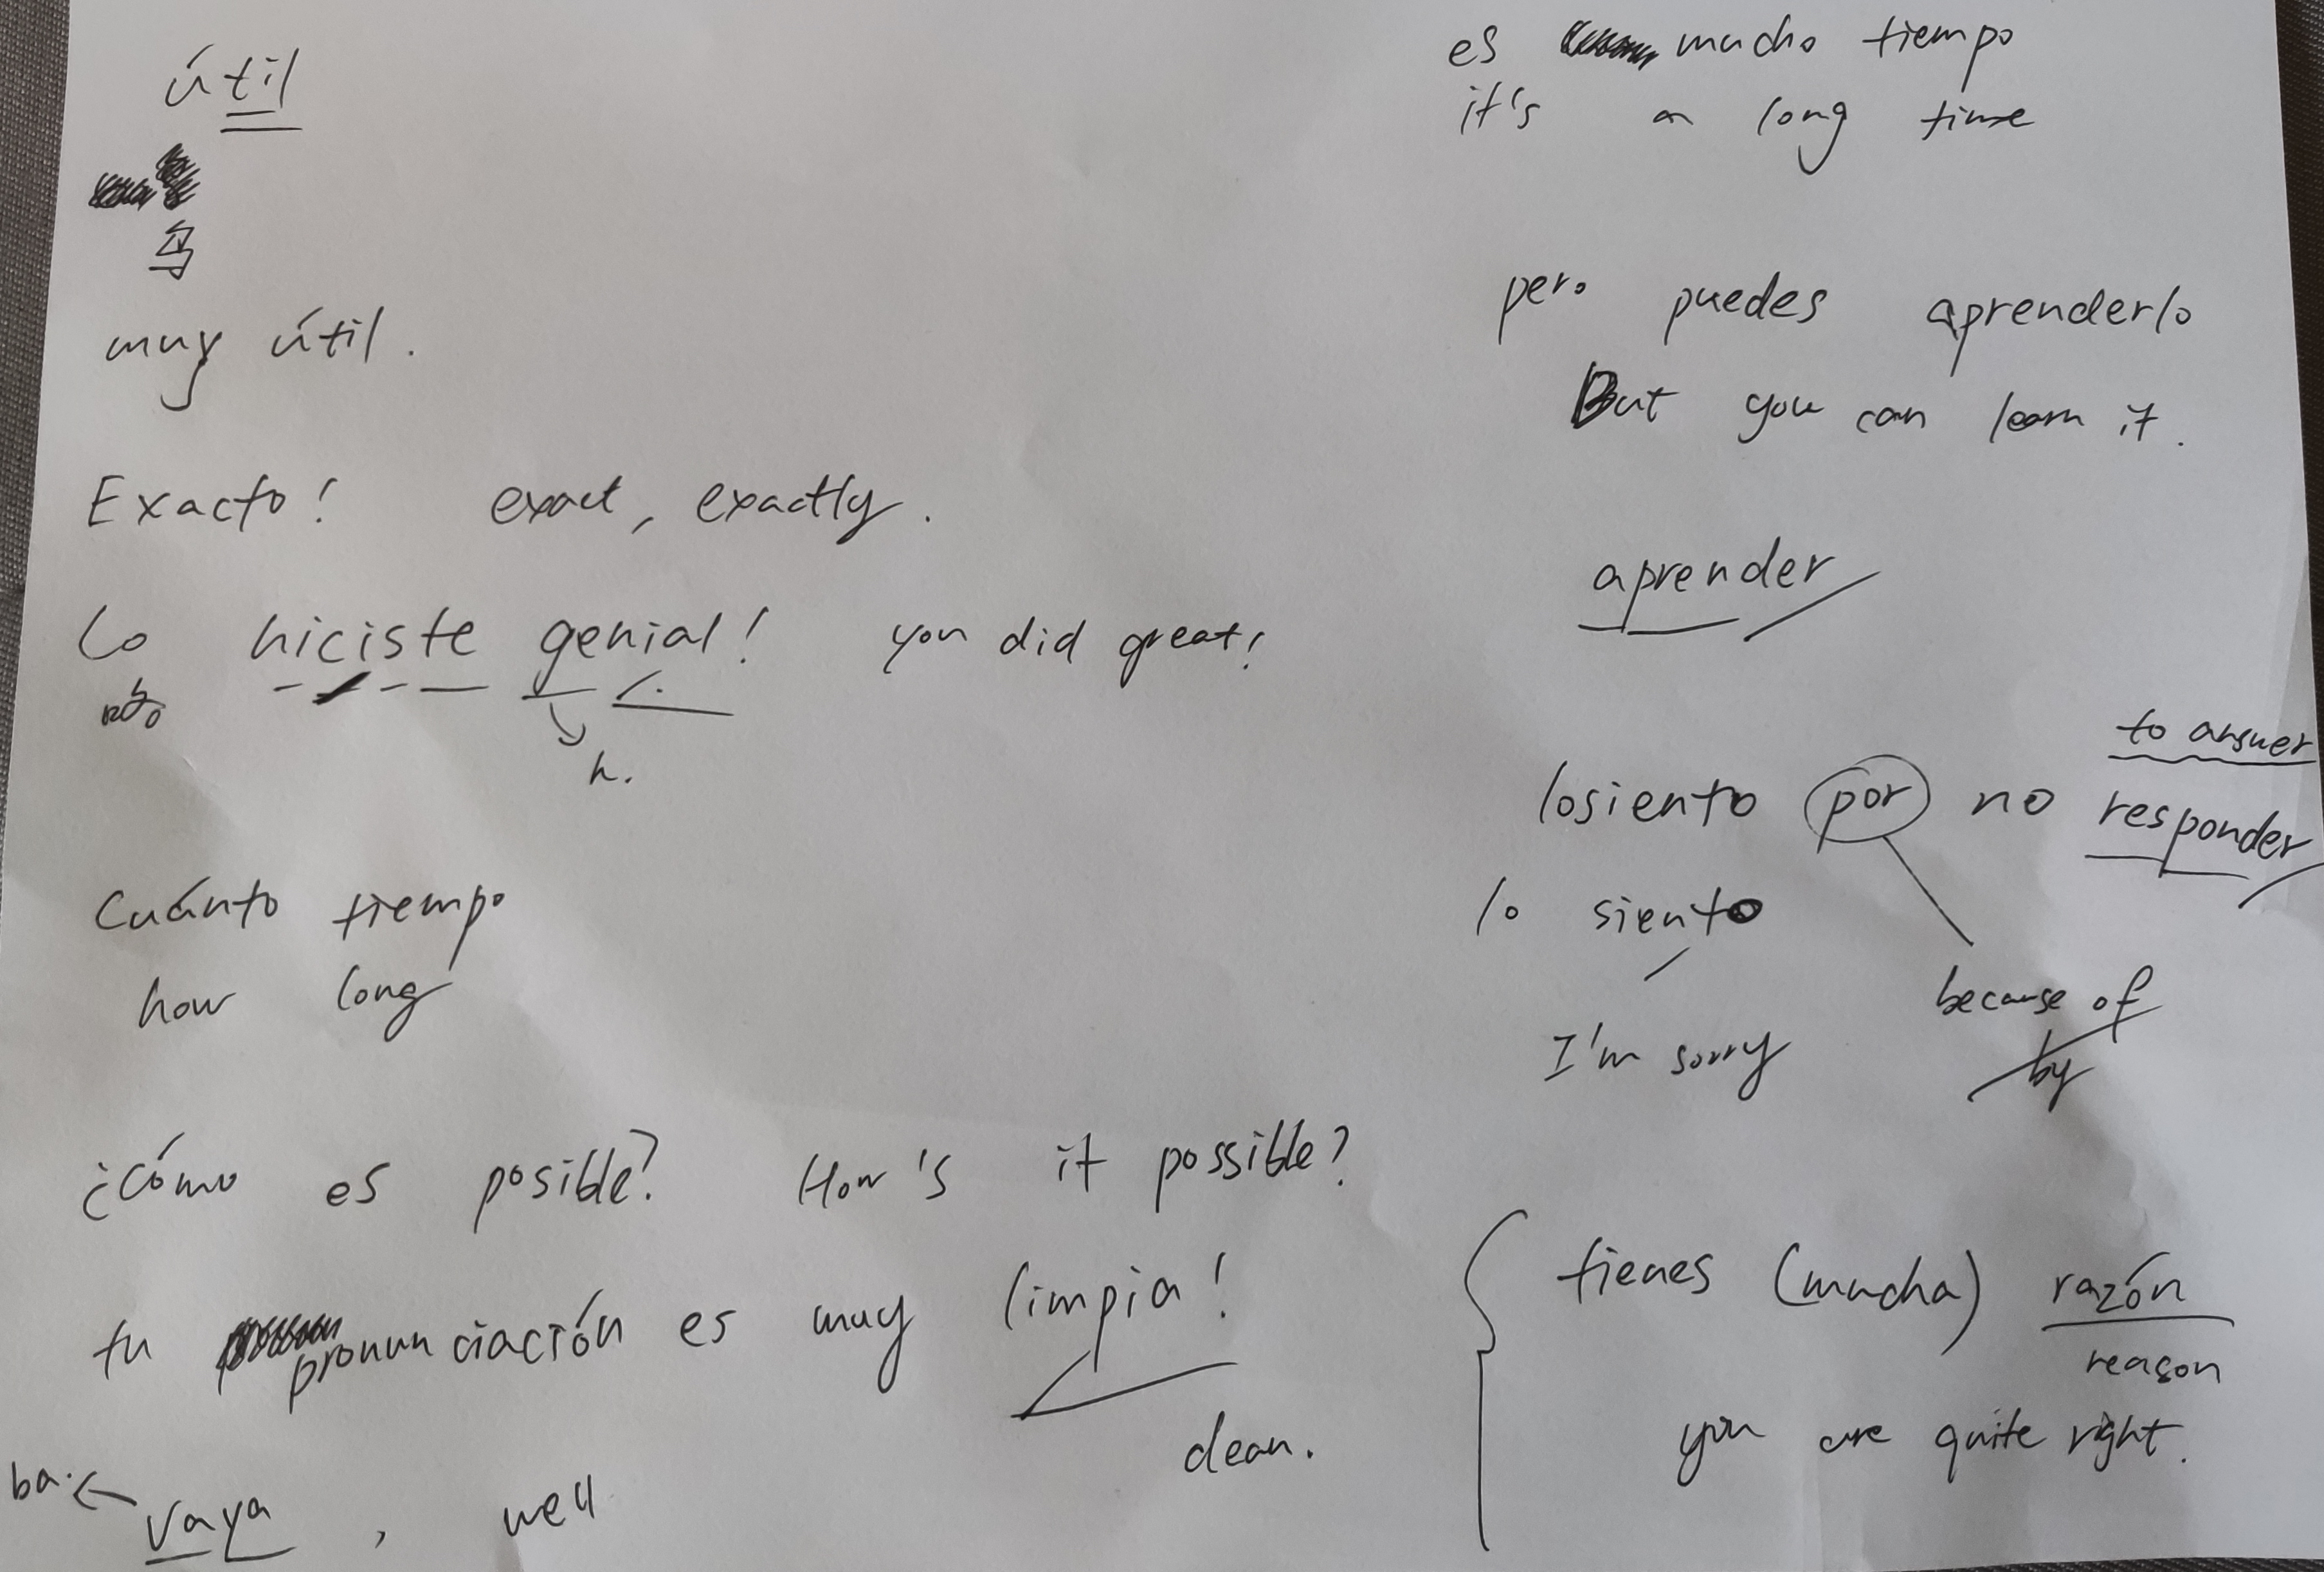 útil
muy útil.
Exacto! exact, exactly.
Lo hiciste genial! you did great!
h.
Cuánto tiempo
how long
¿Cómo es posible? How's it possible?
tu pronunciación es muy limpia!
clean.
ba. ← vaya, well
es mucho tiempo
it's a long time
pero puedes aprenderlo
But you can learn it.
aprender
to answer
losiento por no responder
lo siento
because of
by
I'm sorry
tienes (mucha) razón
reason
you are quite right.